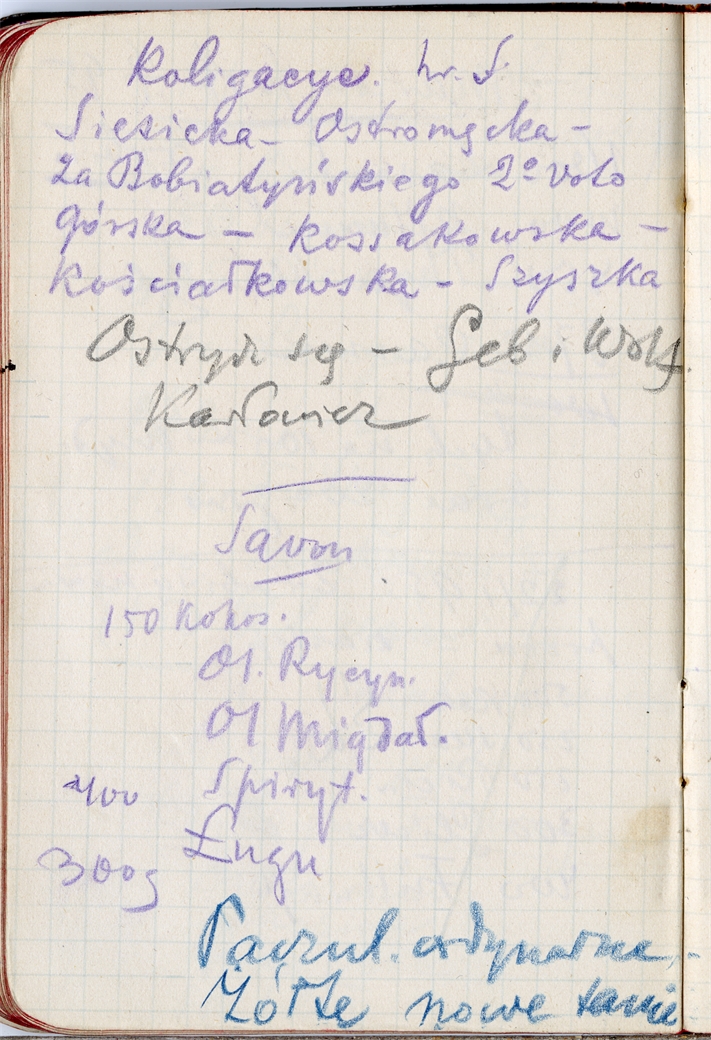 Koligacye. hr. S.
Siesicka - Ostromęcka -
za Bobiatyńskiego 2º voto
Górska - Kossakowska -
Kościałkowska - Szyszka
Ostrydz się - Geb i Wolf.
Karłowicz
Savon
150 Kokos.
Ol. Rycyn.
Ol Migdał.
400 Spiryt.
300g Ługu
Paczul. ordynarne -
Żółte nowe tanie